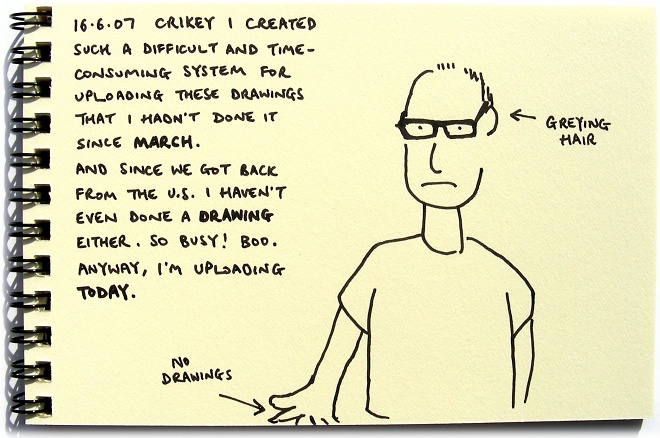 16.6.07 CRIKEY I CREATED
SUCH A DIFFICULT AND TIME-
CONSUMING SYSTEM FOR
UPLOADING THESE DRAWINGS
THAT I HADN'T DONE IT
SINCE MARCH.
AND SINCE WE GOT BACK
FROM THE U.S. I HAVEN'T
EVEN DONE A DRAWING
EITHER. SO BUSY! BOO.
ANYWAY, I'M UPLOADING
TODAY.
GREYING
HAIR
NO
DRAWINGS